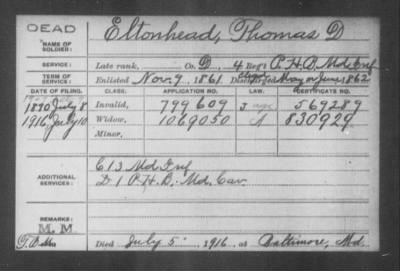 DEAD
NAME OF SOLDIER: Eltonhead, Thomas D
SERVICE: Late rank, Co. D, 4 Reg't P.H.B. Md. Inf
TERM OF SERVICE: Enlisted Nov. 9, 1861 Discharged May or June, 1862
DATE OF FILING. CLASS. APPLICATION NO. LAW. CERTIFICATE NO.
1890 July 8 Invalid, 799609 J 569289
1916 July 10 Widow, 1069050 A 830929
Minor,
ADDITIONAL SERVICES: C 13 Md Inf
D 1 P.H.B. Md. Cav.
REMARKS:
M. M
Died July 5, 1916, at Baltimore, Md.